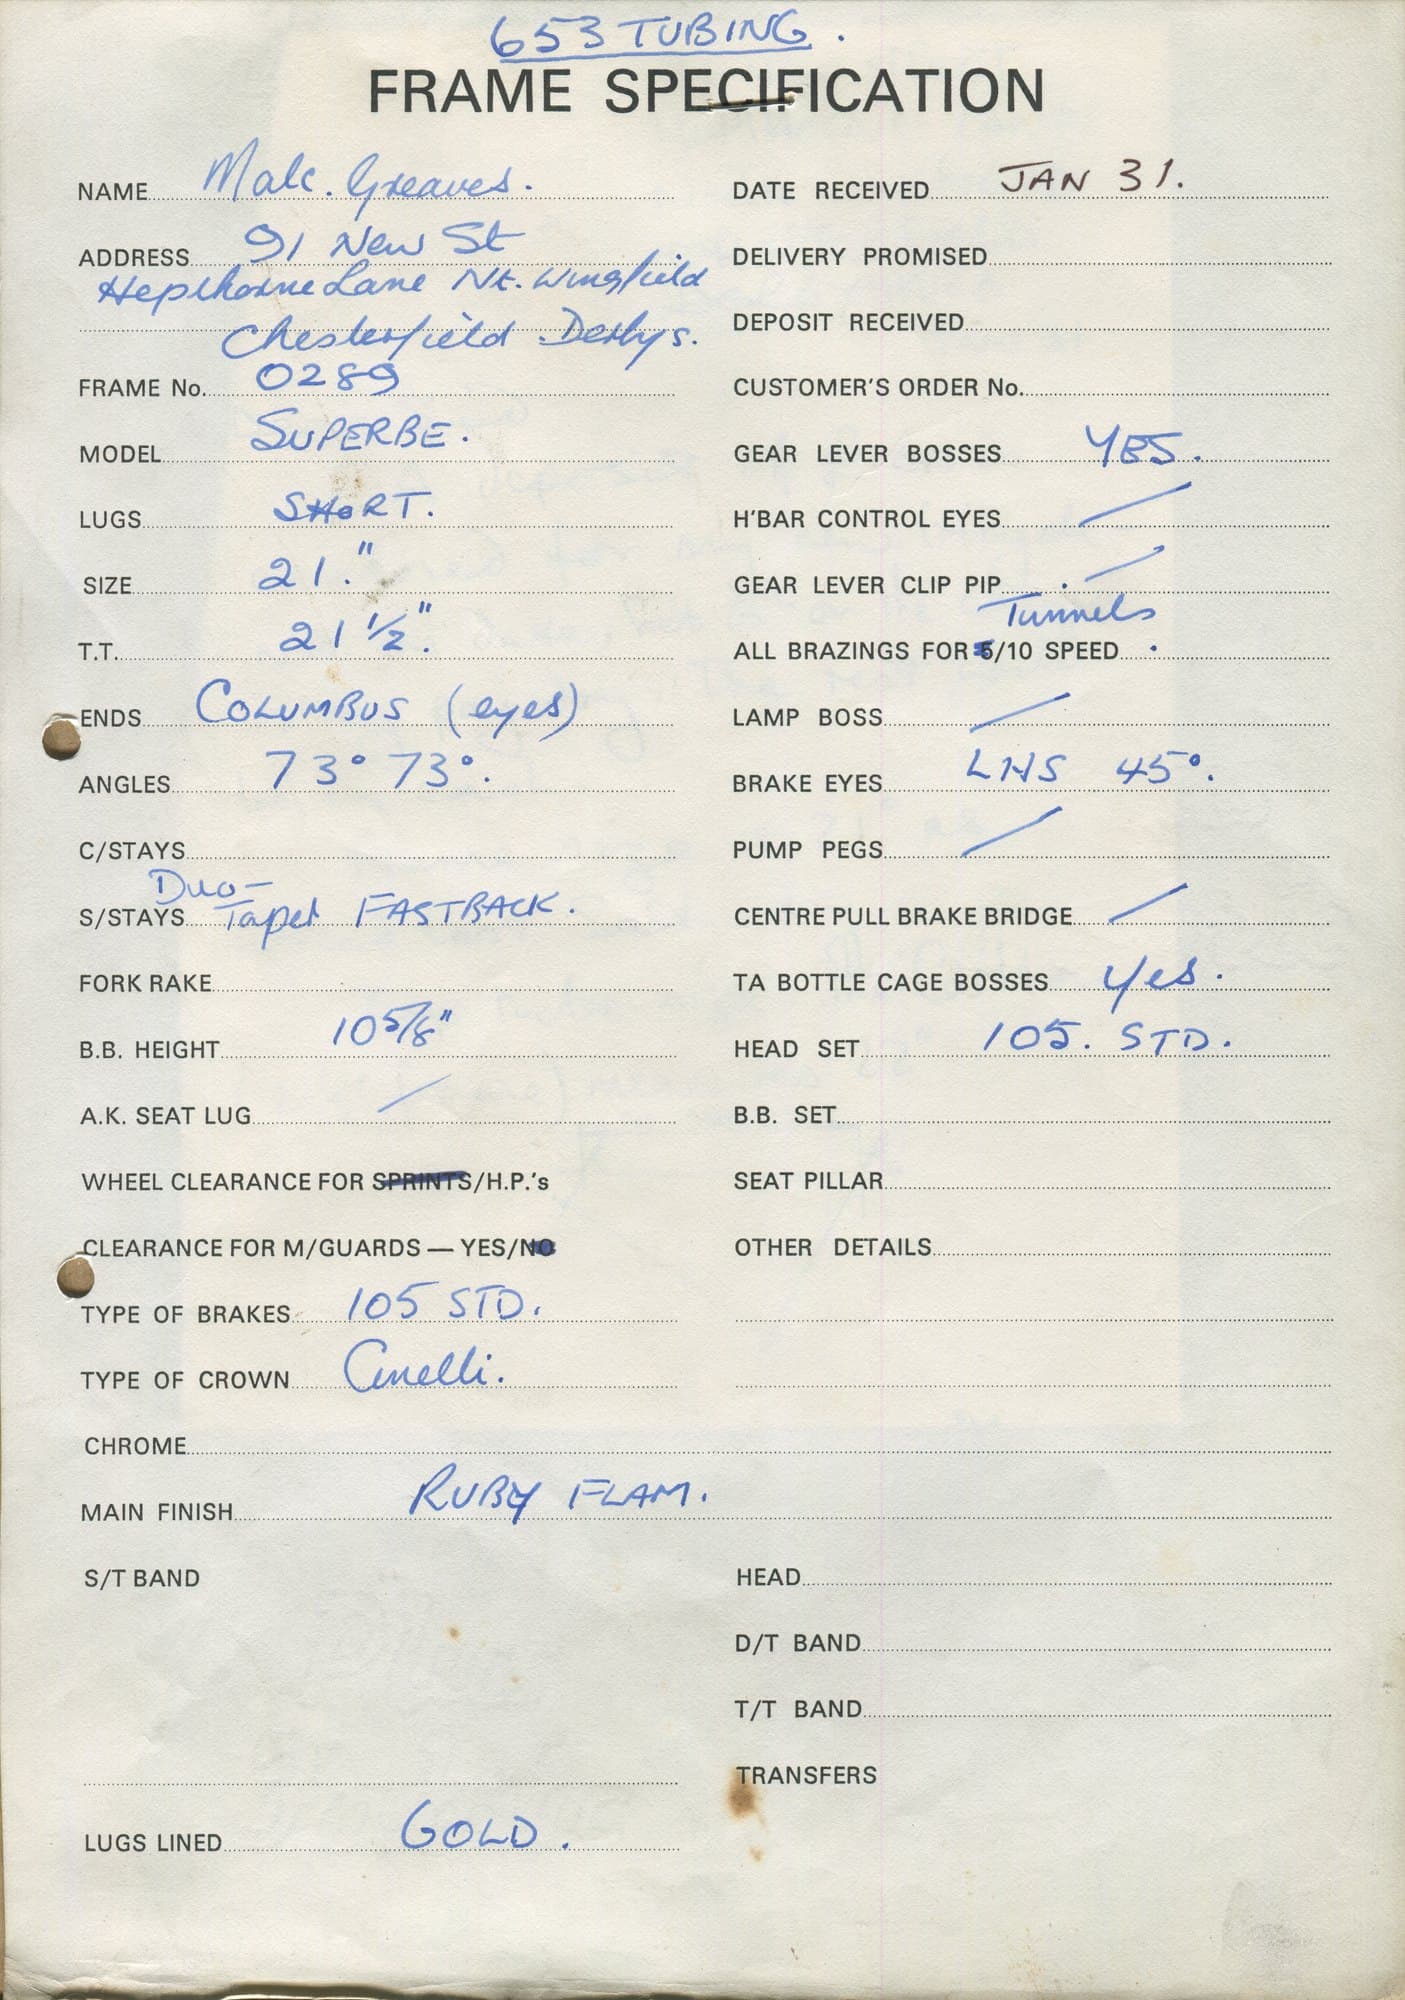 653 TUBING.
FRAME SPECIFICATION
NAME Malc. Greaves.
ADDRESS 91 New St
Hepthorne Lane Nt. Wingfield
Chesterfield Derbys.
FRAME No. 0289
MODEL SUPERBE.
LUGS SHORT.
SIZE 21."
T.T. 21 1/2".
ENDS COLUMBUS (eyes)
ANGLES 73° 73°.
C/STAYS
S/STAYS Duo-
Taper FASTBACK.
FORK RAKE
B.B. HEIGHT 10 5/8"
A.K. SEAT LUG /
WHEEL CLEARANCE FOR SPRINTS/H.P.'s
CLEARANCE FOR M/GUARDS — YES/NO
TYPE OF BRAKES 105 STD.
TYPE OF CROWN Cinelli.
CHROME
MAIN FINISH RUBY FLAM.
S/T BAND
LUGS LINED GOLD.
DATE RECEIVED JAN 31.
DELIVERY PROMISED
DEPOSIT RECEIVED
CUSTOMER'S ORDER No.
GEAR LEVER BOSSES YES.
H'BAR CONTROL EYES /
GEAR LEVER CLIP PIP /
Tunnels
ALL BRAZINGS FOR 5/10 SPEED
LAMP BOSS /
BRAKE EYES LHS 45°.
PUMP PEGS /
CENTRE PULL BRAKE BRIDGE /
TA BOTTLE CAGE BOSSES Yes.
HEAD SET 105. STD.
B.B. SET
SEAT PILLAR
OTHER DETAILS
HEAD
D/T BAND
T/T BAND
TRANSFERS